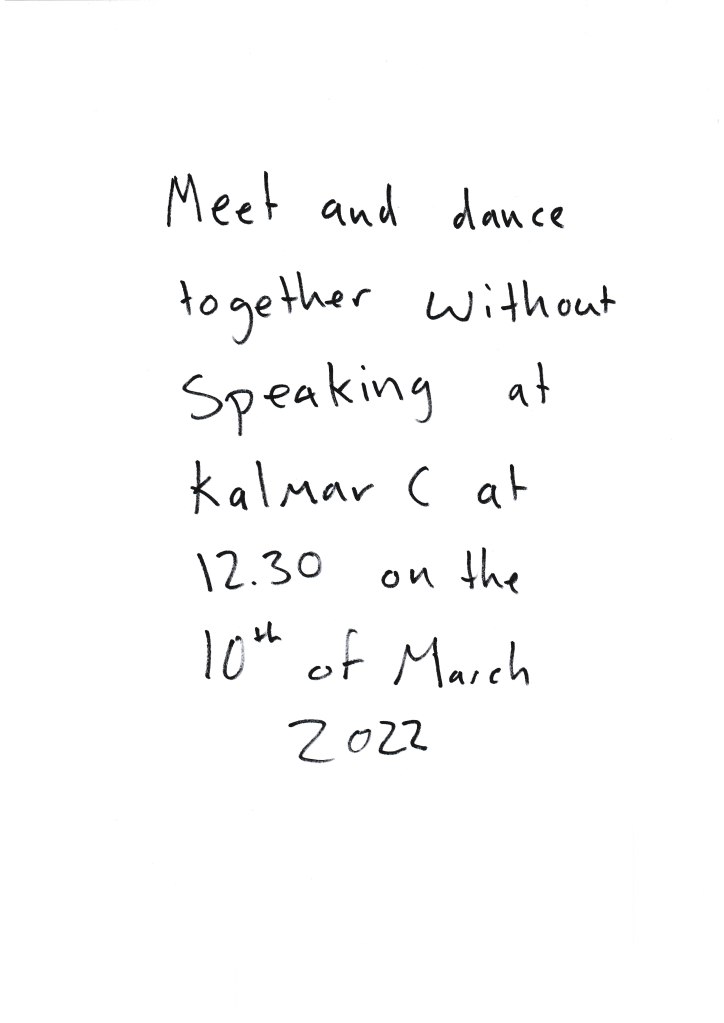 Meet and dance
together without
Speaking at
Kalmar C at
12.30 on the
10th of March
2022